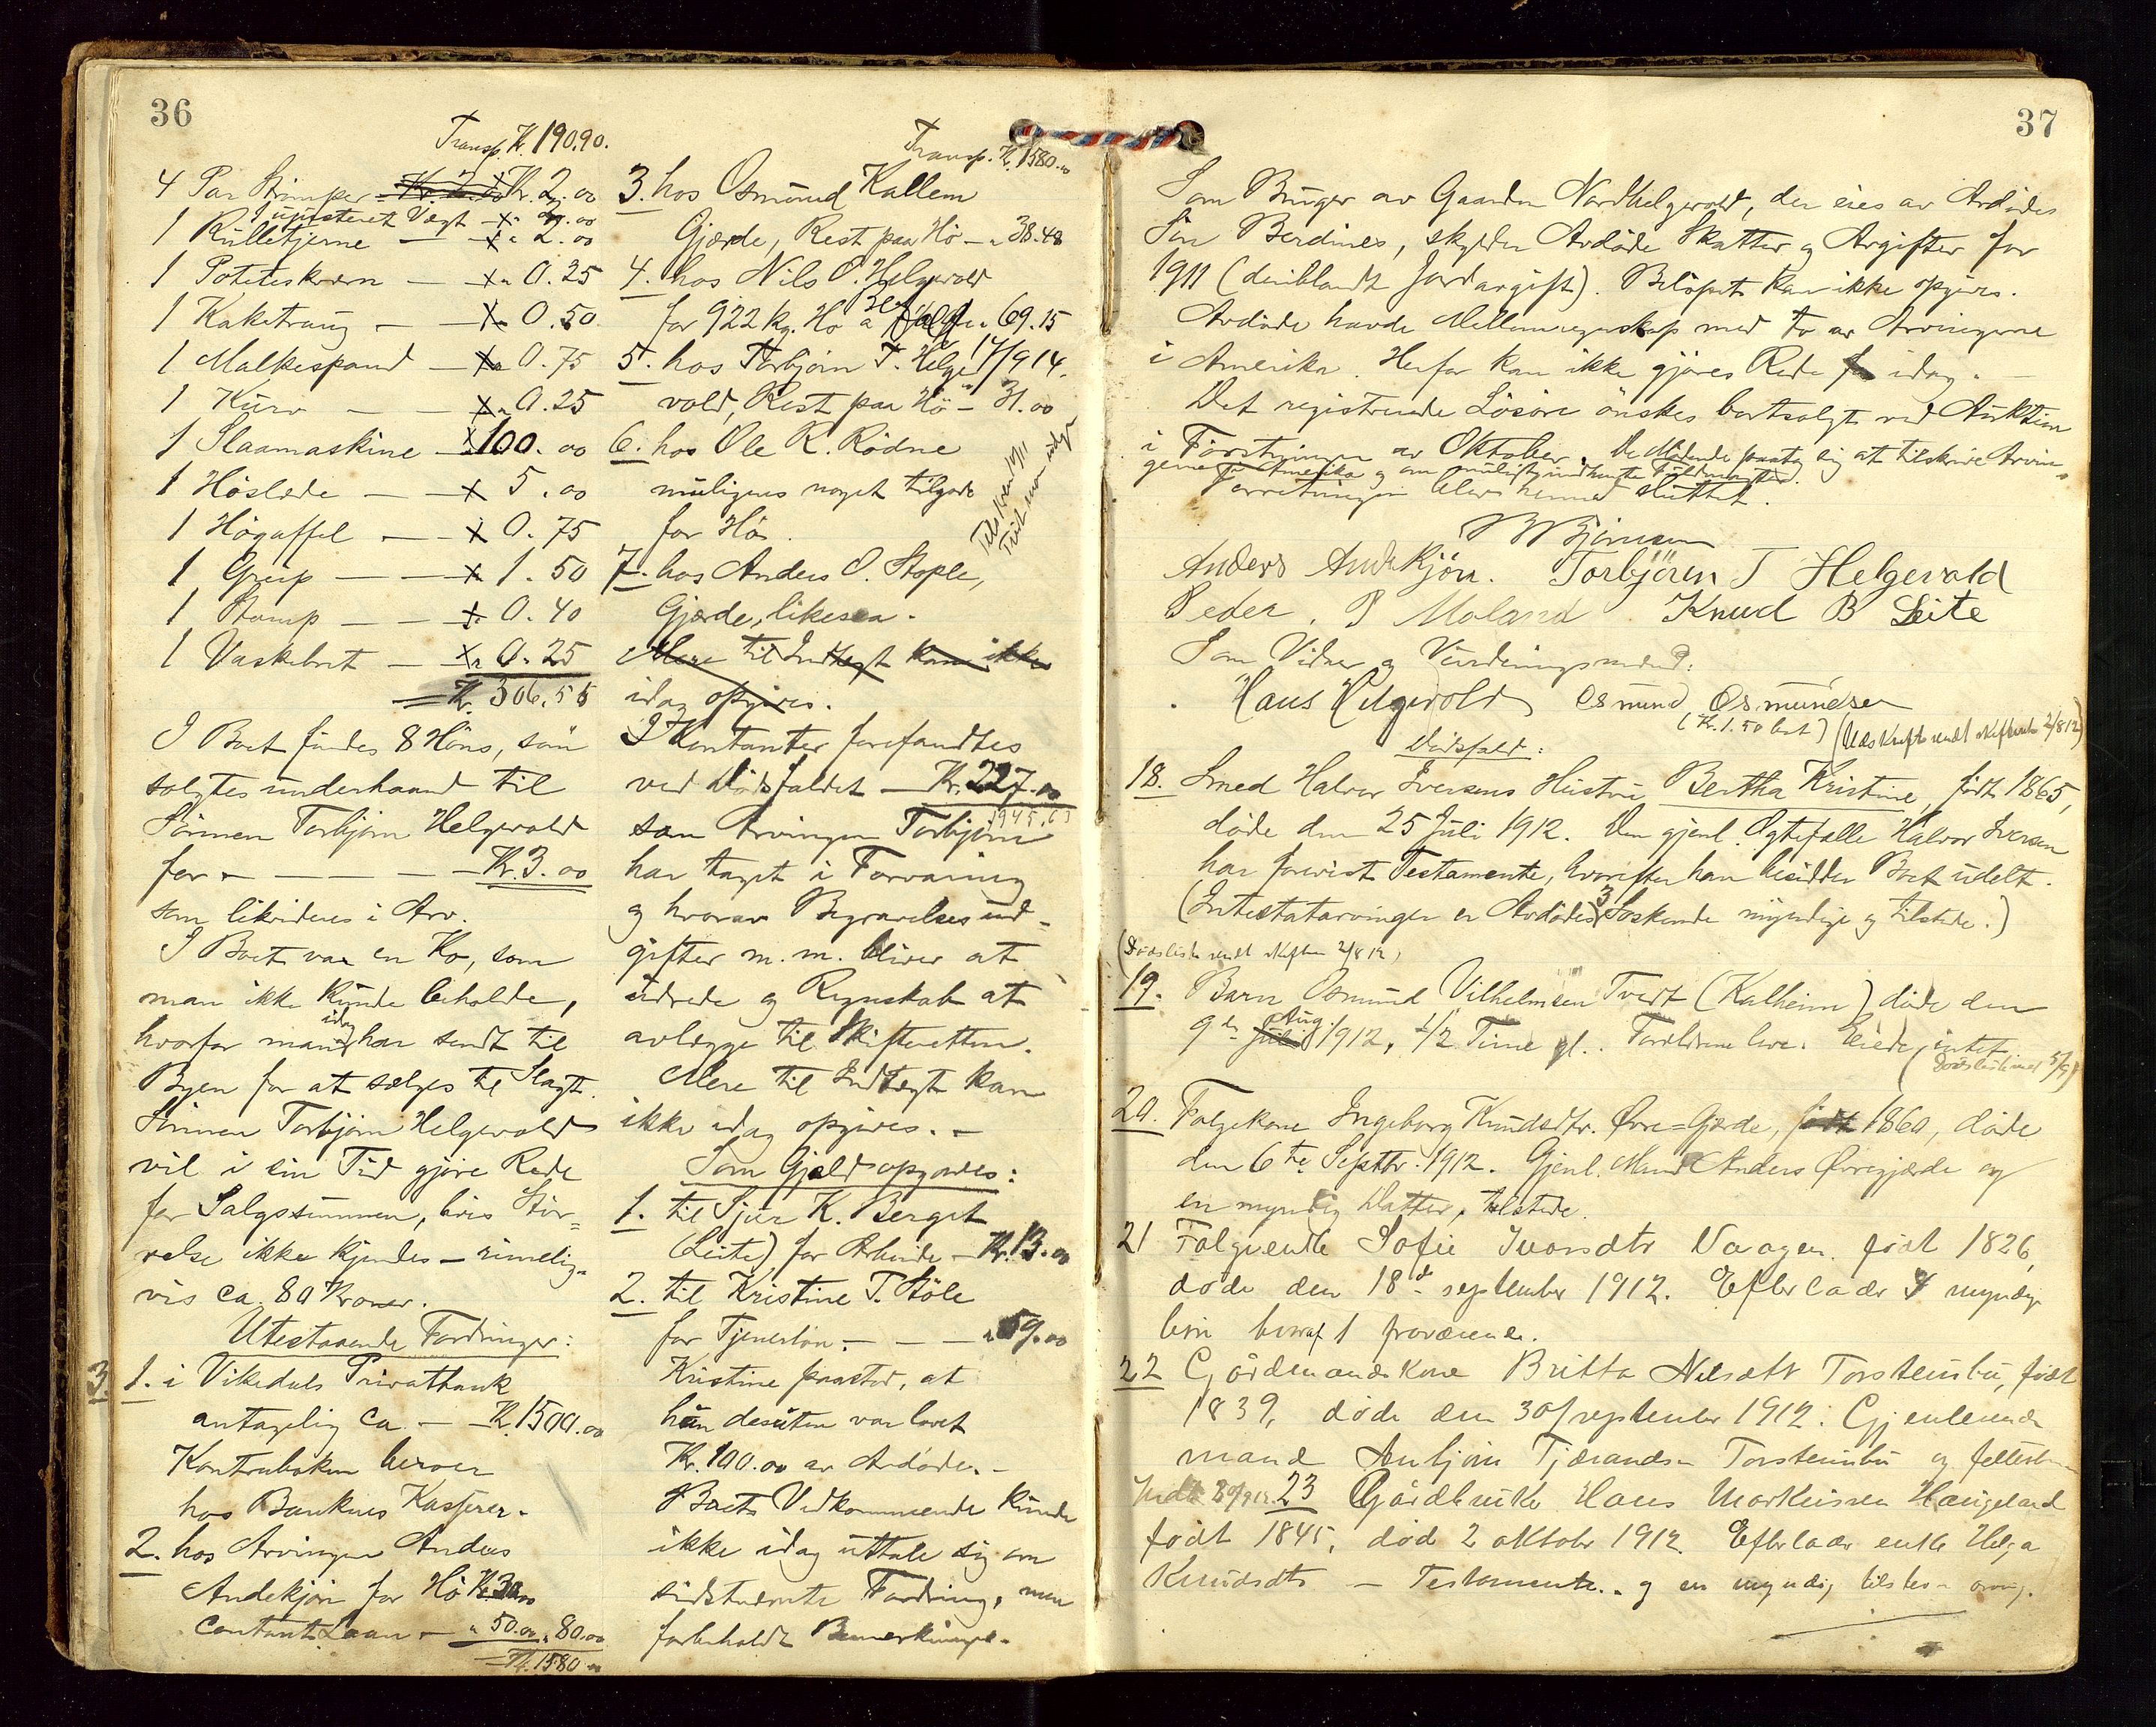 36
Transp. Kr. 190.90.
4 Par Strømper Kr. 2.00
1 ujusteret Vægt
1 Rulletjerne — 2.00
1 Poteteskvern — 0.25
1 Kaketraug — 0.50
1 Malkespand — 0.75
1 Kurv — 0.25
1 Slaamaskine — 100.00
1 Höslede — 5.00
1 Högaffel — 0.75
1 Greip — 1.50
1 Stamp — 0.40
1 Vaskebret — 0.25
= Kr. 306.55
I Boet fandes 8 Höns, som
solgtes underhaand til
Sönnen Torbjörn Helgevold
for — Kr. 3.00
som likvideres i Arv.
I Boet var en Ko, som
man ikke kunde beholde,
hvorfor man idag har sendt til
Byen for at sælges til Slagt.
Sönnen Torbjörn Helgevold
vil i sin Tid gjöre Rede
for Salgssummen, hvis Stör=
relse ikke kjendes — rimelig=
vis ca. 80 Kroner.
Utestaaende Fordringer:
3. 1. i Vikedals Privatbank
antagelig ca. — Kr. 1500.00
Kontraboken beror
hos Bankens Kasserer.
2. hos Arvingen Anders
Andekjön for Hö Kr. 30.00
contant Laan — " 50.00 " 80.00
= Kr. 1580.00
Transp. Kr. 1580.00
3. hos Osmund Kallem
Gjærde, Rest paa Hö — " 38.48
4. hos Nils O. Helgevold
for 922 kg. Hö a " 69.15
5. hos Torbjörn T. Helge
vold, Rest paa Hö — " 31.00
6. hos Ole R. Rödne
muligens noget tilgode
for Hö.
7. hos Anders O. Stople,
Gjærde, likesaa.
Mere til Indtægt kan ikke
idag opgives.
I Kontanter forefandtes
ved Dödsfaldet — Kr. 227.00
1945.63
som Arvingen Torbjörn
har taget i Forvaring
og hvorav Begravelsesud=
gifter m. m. bliver at
udrede og Regnskab at
avlægge til Skifteretten.
Mere til Indtægt kan
ikke idag opgives. —
Som Gjæld opgaves:
1. til Sjur K. Berget
(Leite), for Arbeide — Kr. 13.00
2. til Kristine T. Støle
for Tjenerlön. — " 59.00
Kristine paastod, at
hun desuten var lovet
Kr. 100.00 av Avdöde. —
Boets Vedkommende kunde
ikke idag uttale sig om
sidstnævnte Fordring, men
forbeholdt Bemerkninger.
37
Som Bruger av Gaarden Nordhelgevold, der eies av Avdödes
Sön Berdines, skylder Avdöde Skatter og Avgifter for
1911 (deriblandt Jordavgift). Belöpet kan ikke opgives.
Avdöde havde Mellemregnskap med to av Arvingerne
i Amerika. Herfor kan ikke gjöres Rede idag. —
Det registrerede Lösöre önskes bortsolgt ved Auktion
i Förstningen av Oktober. De Mödende paatog sig at tilskrive Arvin=
gerne i Amerika og om muligt indhente Fuldmagter.
Forretningen blev hermed sluttet.
Anders Andekjön. Torbjören T Helgevold
Peder. P Moland Knud B Leite
Som Vidner og Vurderingsmænd:
Hans Helgevold Osmund Osmundsen
(Kr. 1.50 bet)
Dödsfald:
18. Smed Halvor Iversens Hustru Bertha Kristine, född 1865,
döde den 25 Juli 1912. Den gjenl. Ægtefælle Halvor Iversen
har forevist Testamente, hvorefter han besidder Boet udelt.
(Intestatarvinger er Avdödes 3 Söskende myndige og tilstede.)
(Dödsliste sendt Skifteren 2/8 12)
19. Barn Osmund Vilhelmsen Tvedt (Kalheim) döde den
9de Aug. 1912, 1/2 Time gl. Forældrene lever. Eiede intet
20. Folgekone Ingeborg Knudsdtr. Øvre=Gjærde, född 1860, döde
den 6te Septbr. 1912. Gjenl. Mand Anders Øvregjærde og
en myndig Datter, tilstede.
21 Folgeenke Sofie Ivarsdtr Vaagen född 1826,
döde den 18de september 1912. Efterlader 4 myndige
barn hvoraf 1 fraværende.
22 Gårdmandskone Britta Nilsdtr Torsteinsbu, född
1839, döde den 30/september 1912. Gjenlevende
mand Anbjörn Tjerandsen Torsteinsbu og fellesbarn
23 Gårdbruker Hans Markussen Haugeland
födt 1845, död 2 oktober 1912. Efterlader enke Helga
Knudsdtr — Testamente. og en myndig tilstede arving.